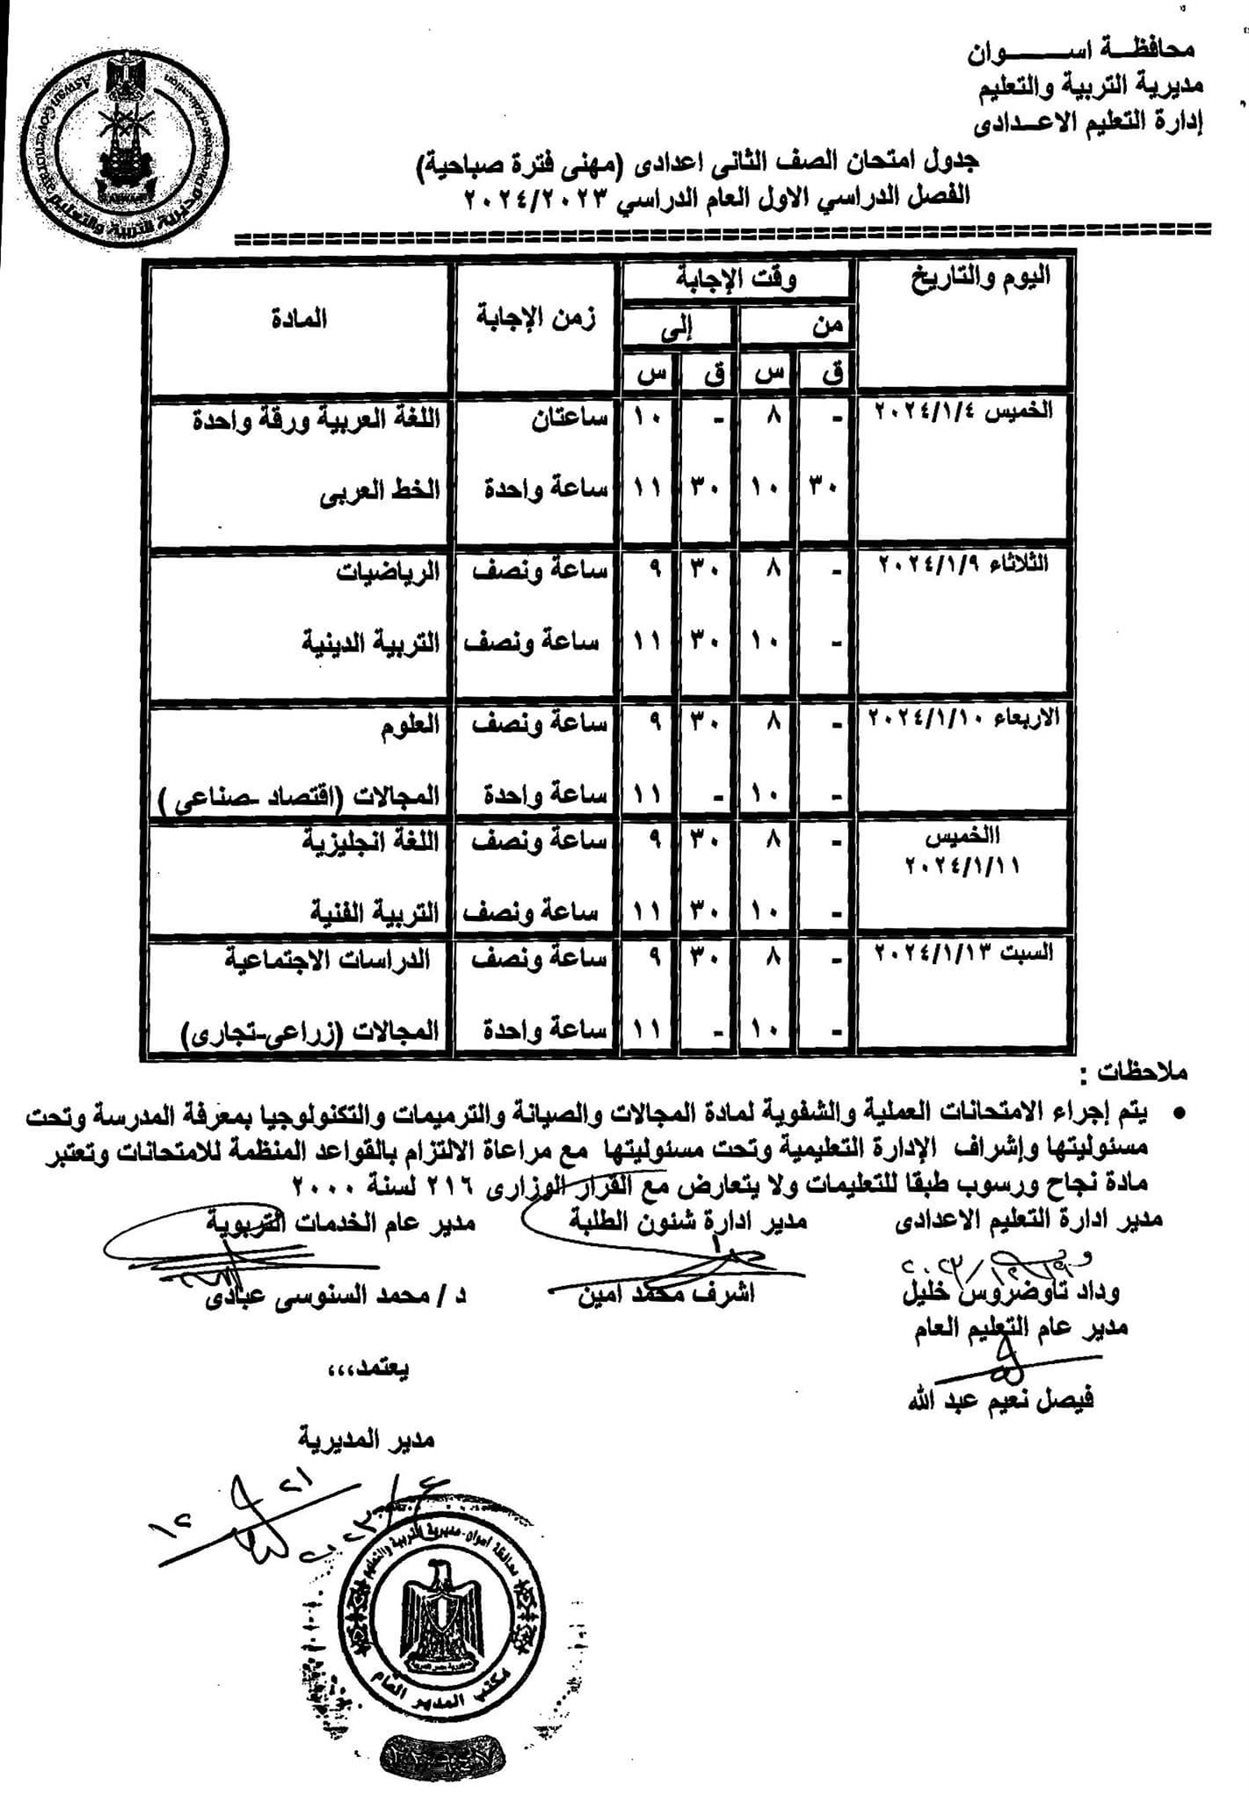 محافظة اسوان
مديرية التربية والتعليم
إدارة التعليم الاعدادى
جدول امتحان الصف الثانى اعدادى (مهنى فترة صباحية)
الفصل الدراسي الاول العام الدراسي ٢٠٢٤/٢٠٢٣
اليوم والتاريخ وقت الإجابة زمن الإجابة المادة
من إلى
ق س ق س
الخميس ٢٠٢٤/١/٤ - ٨ - ١٠ ساعتان اللغة العربية ورقة واحدة
٣٠ ١٠ ٣٠ ١١ ساعة واحدة الخط العربى
الثلاثاء ٢٠٢٤/١/٩ - ٨ ٣٠ ٩ ساعة ونصف الرياضيات
- ١٠ ٣٠ ١١ ساعة ونصف التربية الدينية
الاربعاء ٢٠٢٤/١/١٠ - ٨ ٣٠ ٩ ساعة ونصف العلوم
- ١٠ - ١١ ساعة واحدة المجالات (اقتصاد -صناعى )
االخميس - ٨ ٣٠ ٩ ساعة ونصف اللغة انجليزية
٢٠٢٤/١/١١
- ١٠ ٣٠ ١١ ساعة ونصف التربية الفنية
السبت ٢٠٢٤/١/١٣ - ٨ ٣٠ ٩ ساعة ونصف الدراسات الاجتماعية
- ١٠ - ١١ ساعة واحدة المجالات (زراعى-تجارى)
ملاحظات :
• يتم إجراء الامتحانات العملية والشفوية لمادة المجالات والصيانة والترميمات والتكنولوجيا بمعرفة المدرسة وتحت
مسئوليتها وإشراف الإدارة التعليمية وتحت مسئوليتها مع مراعاة الالتزام بالقواعد المنظمة للامتحانات وتعتبر
مادة نجاح ورسوب طبقا للتعليمات ولا يتعارض مع القرار الوزارى ٢١٦ لسنة ٢٠٠٠
مدير ادارة التعليم الاعدادى مدير ادارة شئون الطلبة مدير عام الخدمات التربوية
وداد تاوضروس خليل اشرف محمد امين د / محمد السنوسى عبادى
مدير عام التعليم العام
فيصل نعيم عبد الله
يعتمد،،،
مدير المديرية
محافظة أسوان - مديرية التربية والتعليم
جمهورية مصر العربية
مكتب المدير العام